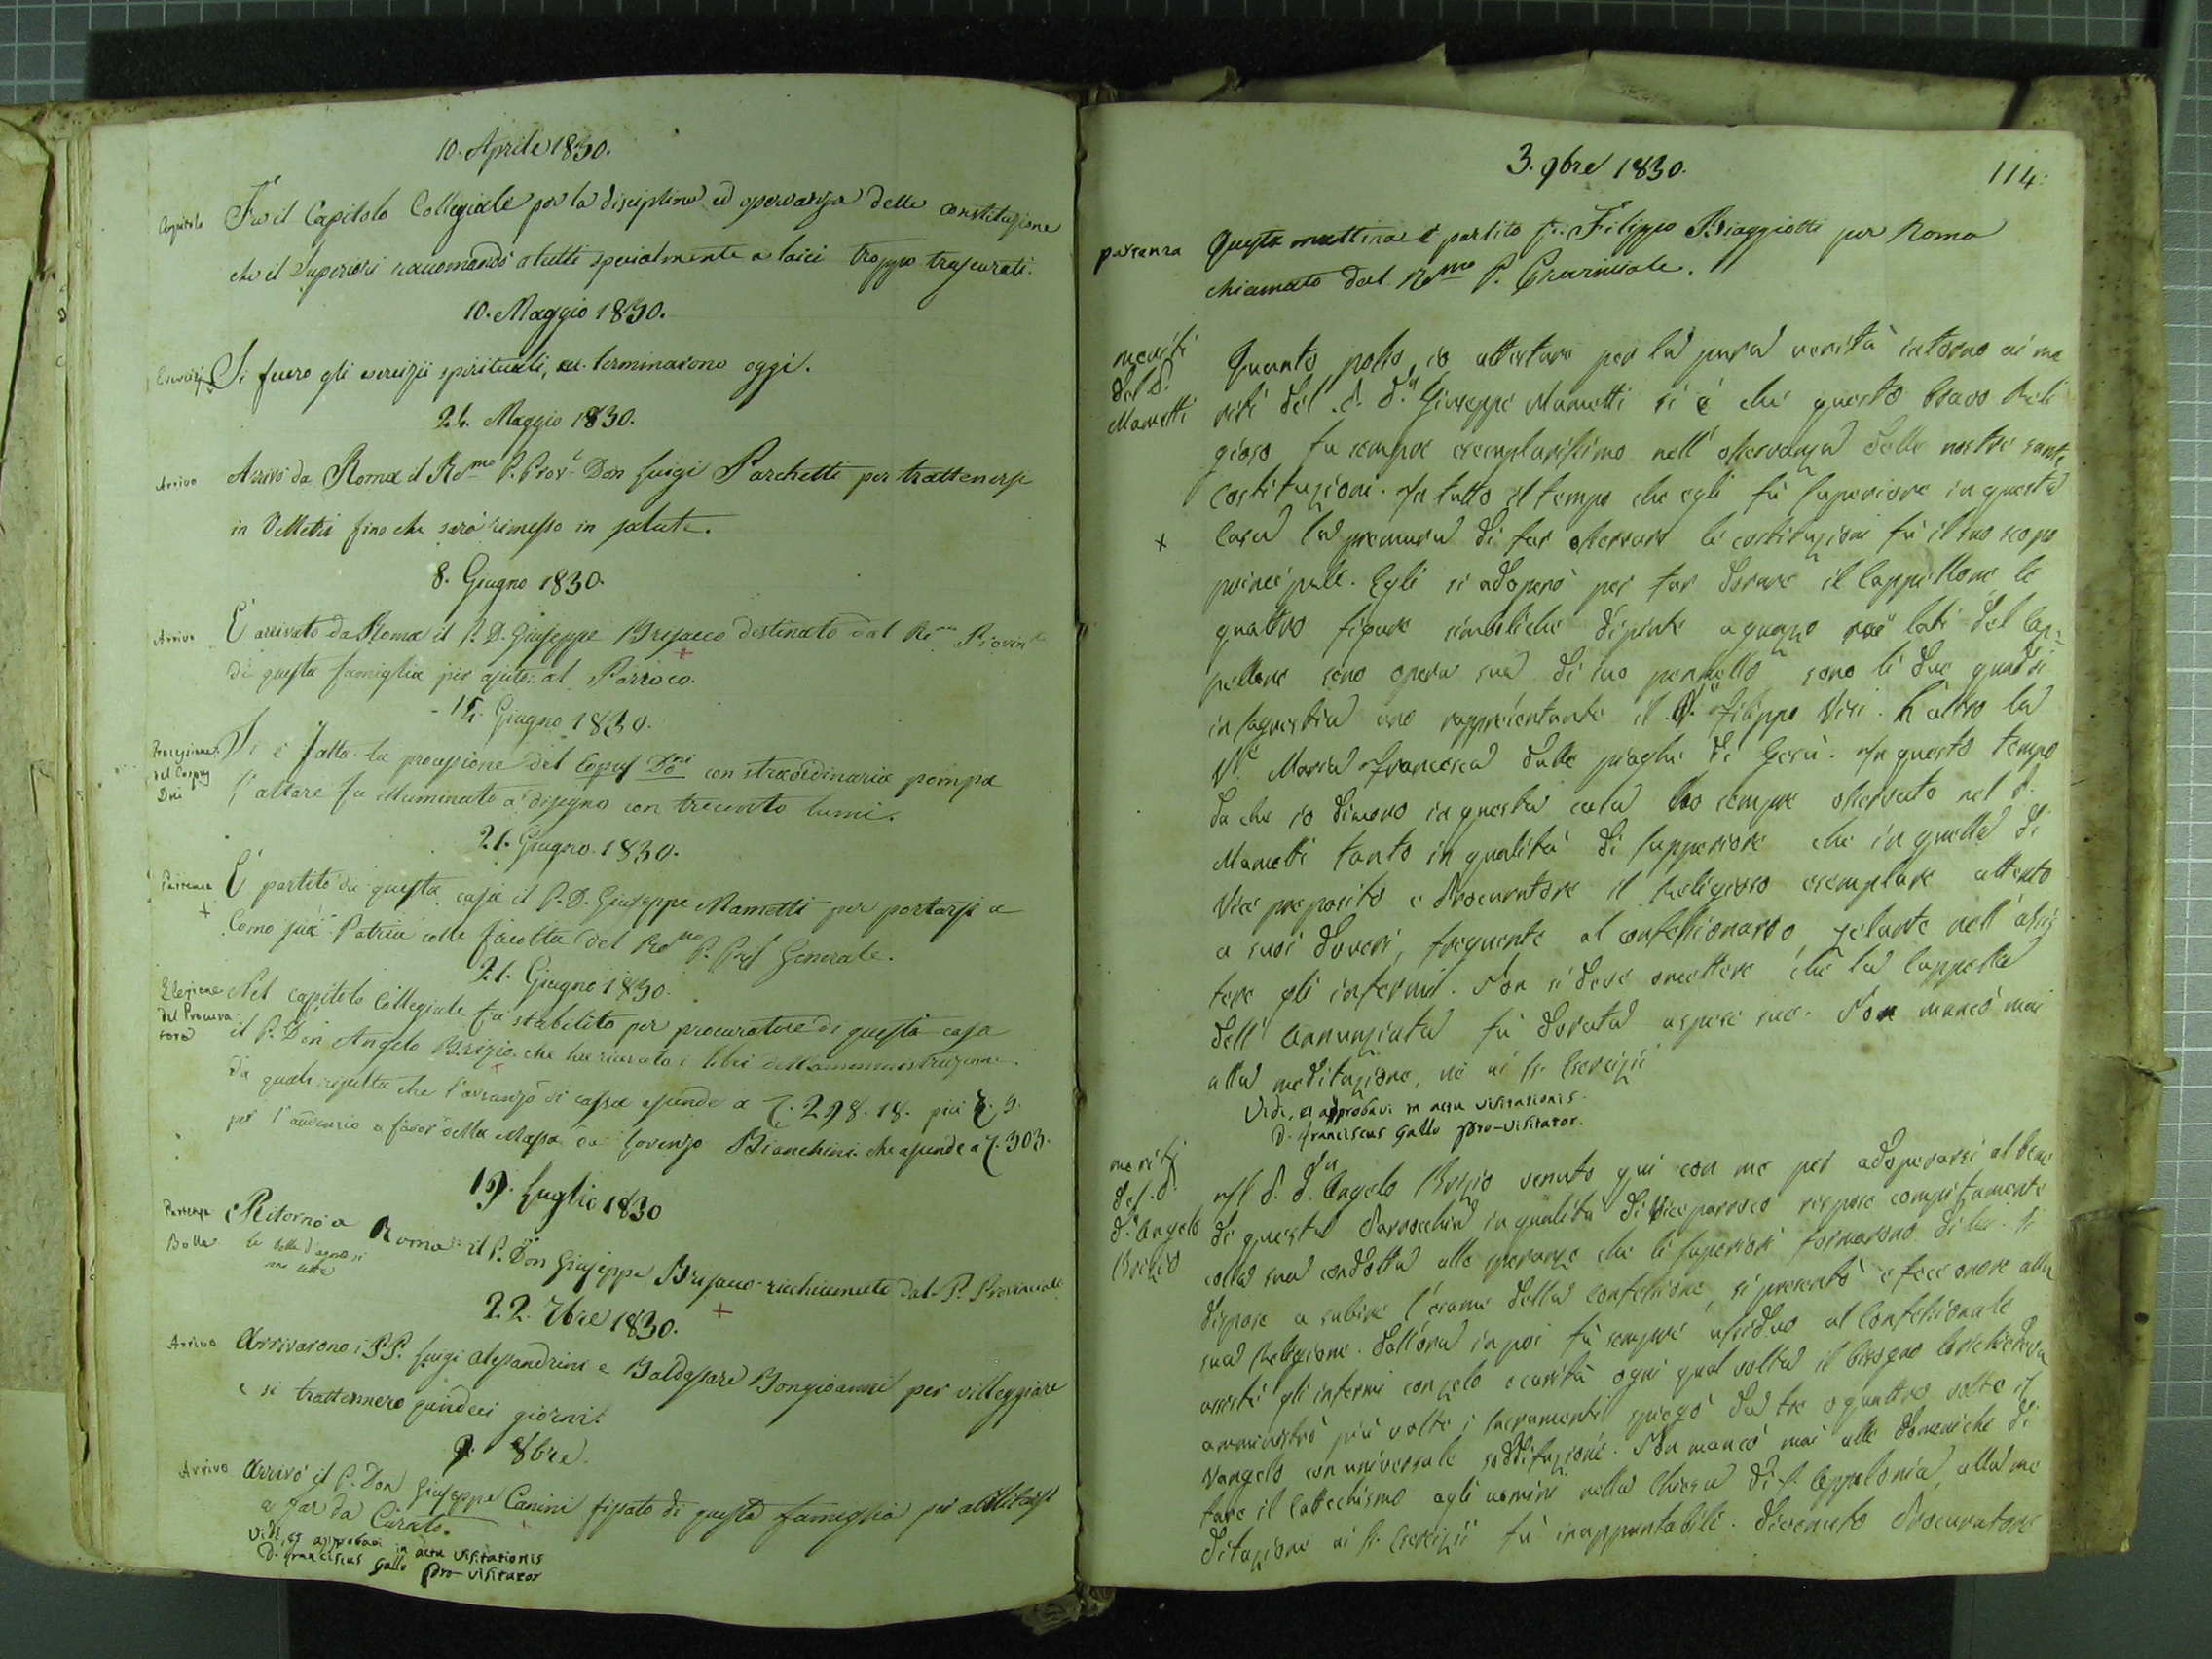 10. Aprile 1830.
Capitolo
Fu il Capitolo Collegiale per la disciplina ed osservanza delle constituzione
che il Superiori raccomandò a tutti specialmente a laici troppo trascurati.
10. Maggio 1830.
Esercizj
Si fuero gli esercizii spirituali, terminarono oggi.
24. Maggio 1830.
Arrivo
Arrivò da Roma il Rdmo P. Prov.e Don Luigi Parchetti per trattenersi
in Velletri fino che sarà rimesso in salute.
8. Giugno 1830.
Arrivo
È arrivato da Roma il P. D. Giuseppe Brisacco destinato dal Rmo Provinle
di questa famiglia per ajuto al Parroco.
Giugno 1830.
Processione del Corpus Dni
Si è fatta la processione del Copus Dni con straordinaria pompa
l'altare fu illuminato a disegno con trecento lumi.
21. Giugno. 1830.
Partenza
+
È partito da questa casa il P. D. Giuseppe Mametti per portarsi a
Como sua Patria colle facoltà del Rdmo P. Generale.
21. Giugno 1830.
Elezione del Procuratore
Nel capitolo Collegiale fu stabilito per procuratore di questa casa
il P. Don Angelo Brizio che ha ricevuto i libri dell'amministrazione.
Da quale risulta che l'avvanzo di cassa ascende a 298.18. più
per l' a favor della Massa da Lorenzo Bianchini che ascende a 303.
19. Luglio 1830
Partenza
Bolle
Ritornò a Roma il P. Don Giuseppe Brisacco richiamato dal P. Provinciale
le bolle
+
22. 7bre 1830.
Arrivo
Arrivarono i PP. Luigi Alessandrini e Baldassare Bongioanni per villeggiare
e si trattennero quindeci giorni.
8bre.
Arrivo
Arrivò il P. Don Giuseppe Canini fissato di questa famiglia per abilitarsi
a far da Curato.
Vidi, et approbavi in actu visitationis
D. Franciscus Gallo Pro-Visitator
3. 9bre 1830.
114.
partenza
Questa mattina è partito Fr. Filippo Biaggiotti per Roma
chiamato dal Rdmo P. Provinciale.
meriti del P. Mametti
Quanto posso io attestare per la pura verità intorno ai me
riti del P. D.n Giuseppe Mametti si è che questo bravo Reli
gioso fu sempre esemplarissimo nell'osservanza delle nostre sante
Costituzioni. In tutto il tempo che egli fù Superiore in questa
+
Casa la premura di far osservare le costituzioni fù il suo scopo
principale. Egli si adoperò per far dorare il Cappellone le
quattro figure simboliche dipinte a guazzo lati del Cap=
pellone sono opera sua di suo pennello sono li due quadri
in sagrestia uno rappresentante il V. Filippo Vici. L'altro la
V. Maria Francesca dalle piaghe di Gesù. In questo tempo
da che io dimoro in questa casa ho sempre osservato nel P.
Mametti tanto in qualità di Supperiore che in quella di
Vice preposito e Procuratore il Religioso esemplare attento
a suoi doveri, frequente al confessionario, zelante nell'assis
tere gli infermi. Non si deve omettere che la Cappella
dell'Annunziata fù dorata a spese sue. Non mancò mai
alla meditazione, nè ai SS. Esercizii
Vidi, et approbavi in actu visitationis.
D. Franciscus Gallo Pro-Visitator.
meriti del P. D.n Angelo Brizio
Il P. D.n Angelo Brizio venuto qui con me per adoperarsi al bene
di questa Parrocchia in qualità di Viceparroco rispose compitamente
colla sua condotta alle speranze che li Superiori formarono di lui. Si
dispose a subire l'esame della confessione, si presentò e fece onore alla
sua Religione. Dall'ora in poi fù sempre assiduo al Confessionale
assistè gli infermi con zelo e carità ogni qual volta il bisogno lo richiedeva
amministrò più volte i Sacramenti spiegò da tre o quattro volte il
Vangelo con universale soddisfazione. Non mancò mai alle domeniche di
fare il Cattechismo agli uomini nella Chiesa di S. Appolonia, alla me
ditazione ai SS. Esercizii fù inappuntabile. Divenuto Procuratore